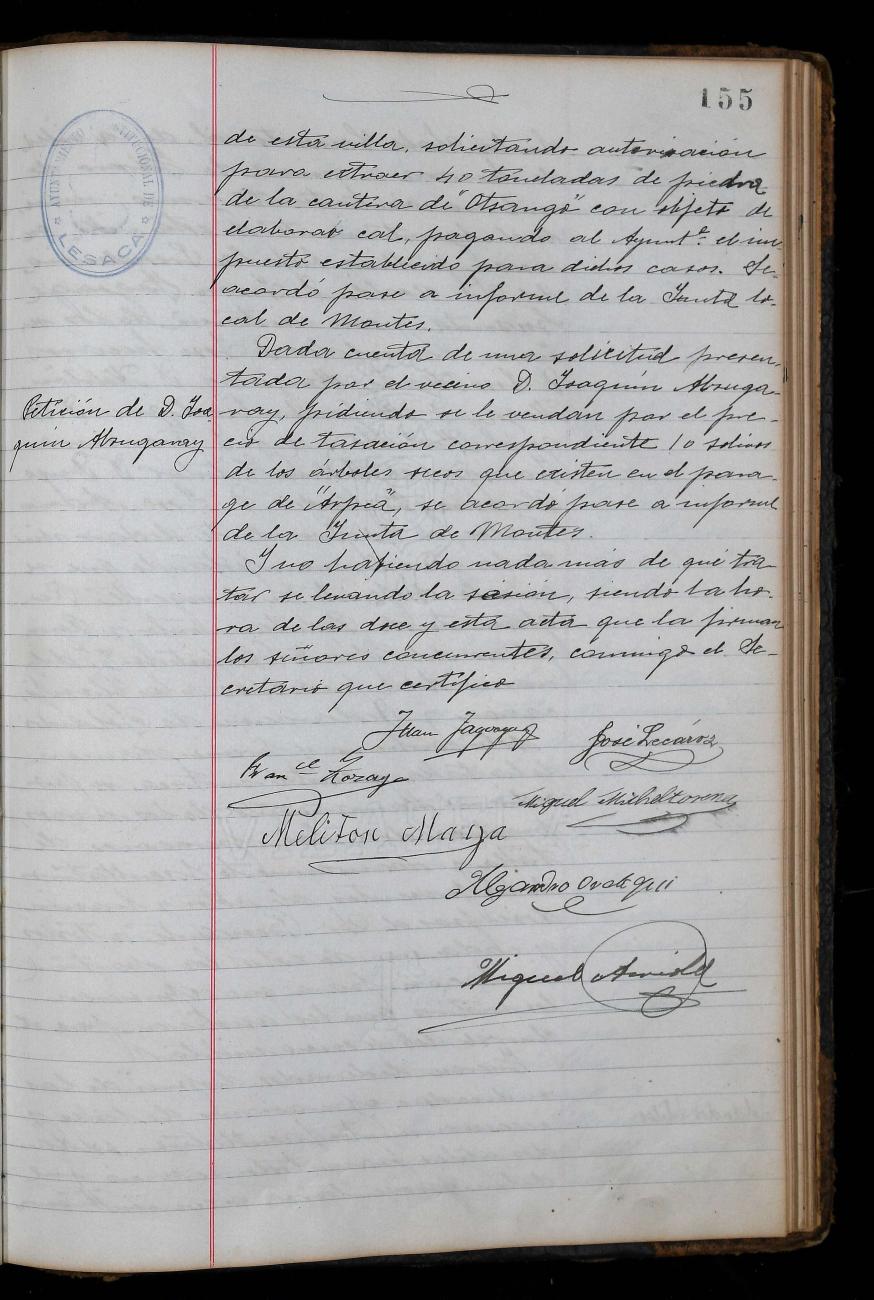 155
AYUNTAMIENTO CONSTITUCIONAL DE
LESACA
de esta villa, solicitando autorización
para extraer 40 toneladas de piedra
de la cantera de "Otsango" con objeto de
elaborar cal, pagando al Ayunt.º el im-
puesto establecido para dichos casos. Se
acordó pase a informe de la Junta lo-
cal de Montes.
Dada cuenta de una solicitud presen-
tada por el vecino D. Joaquín Abruga-
Petición de D. Joa-
quín Abrugaray
ray, pidiendo se le vendan por el pre-
cio de tasación correspondiente 10 solivos
de los árboles secos que existen en el para-
ge de "Arpea", se acordó pase a informe
de la Junta de Montes.
Y no habiendo nada más de qué tra-
tar se levando la sesión, siendo la ho-
ra de las doce y esta acta que la firman
los señores concurrentes, conmigo el Se-
cretario que certifico
Juan
José Lecároz
Fran.co Lozaya
Miguel Micheltorena
Meliton Maya
Miguel